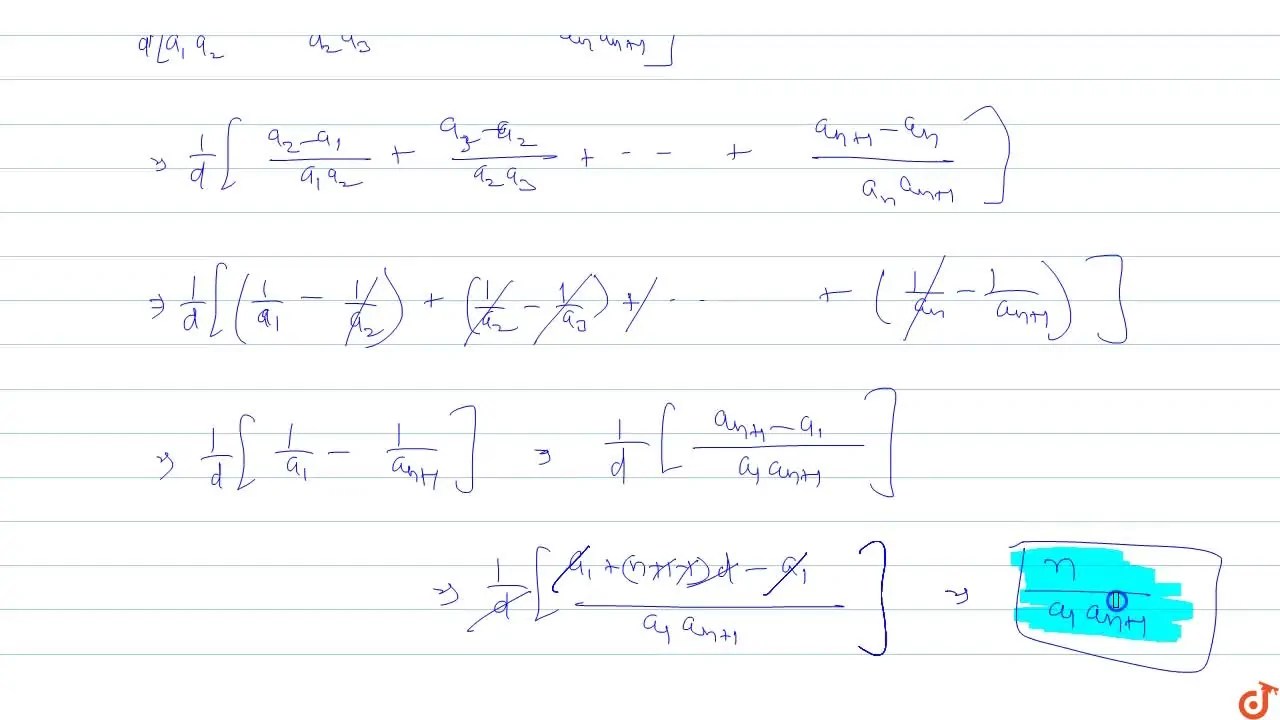 d[a₁ a₂ a₂ a₃ aₙ aₙ₊₁]
⇒ 1/d [ (a₂ - a₁)/(a₁ a₂) + (a₃ - a₂)/(a₂ a₃) + - - + (aₙ₊₁ - aₙ)/(aₙ aₙ₊₁) ]
⇒ 1/d [ (1/a₁ - 1/a₂) + (1/a₂ - 1/a₃) + - - + (1/aₙ - 1/aₙ₊₁) ]
⇒ 1/d [ 1/a₁ - 1/aₙ₊₁ ] ⇒ 1/d [ (aₙ₊₁ - a₁)/(a₁ aₙ₊₁) ]
⇒ 1/d [ (a₁ + (n+1-1)d - a₁)/(a₁ aₙ₊₁) ] ⇒ n/(a₁ aₙ₊₁)